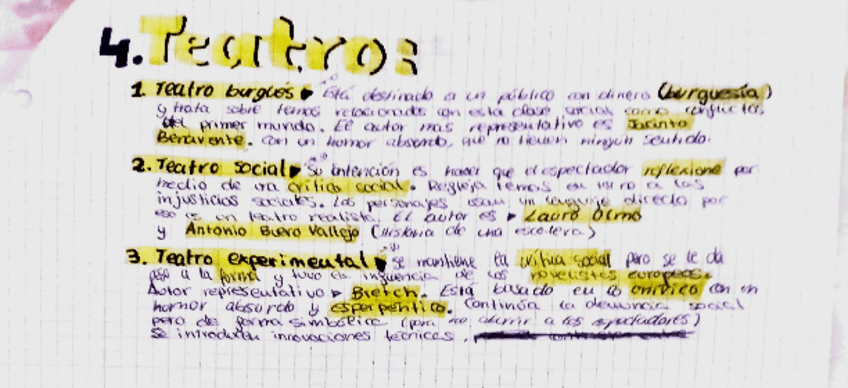 4. Teatro:
1. Teatro burgués ▸ Está destinado a un público con dinero (burguesía)
y trata sobre temas relacionados con esta clase social como conflictos
del primer mundo. El autor mas representativo es Jacinto
Benavente. con un humor absurdo, que no tienen ningún sentido.
2. Teatro social ▸ Su intención es hacer que el espectador reflexione por
medio de una crítica social. Refleja temas en torno a las
injusticias sociales. Los personajes usan un lenguaje directo por
eso es un teatro realista. El autor es ▸ Lauro Olmo
y Antonio Buero Vallejo (Historia de una escalera)
3. Teatro experimental ▸ se mantiene la crítica social pero se le da
a la forma y tuvo la influencia de los novelistas europeos.
Autor representativo ▸ Bretch. Está basado en lo onírico con un
humor absurdo y esperpéntico. Continúa la denuncia social
pero de forma simbólica (para no aburrir a los espectadores)
Se introducen innovaciones técnicas.